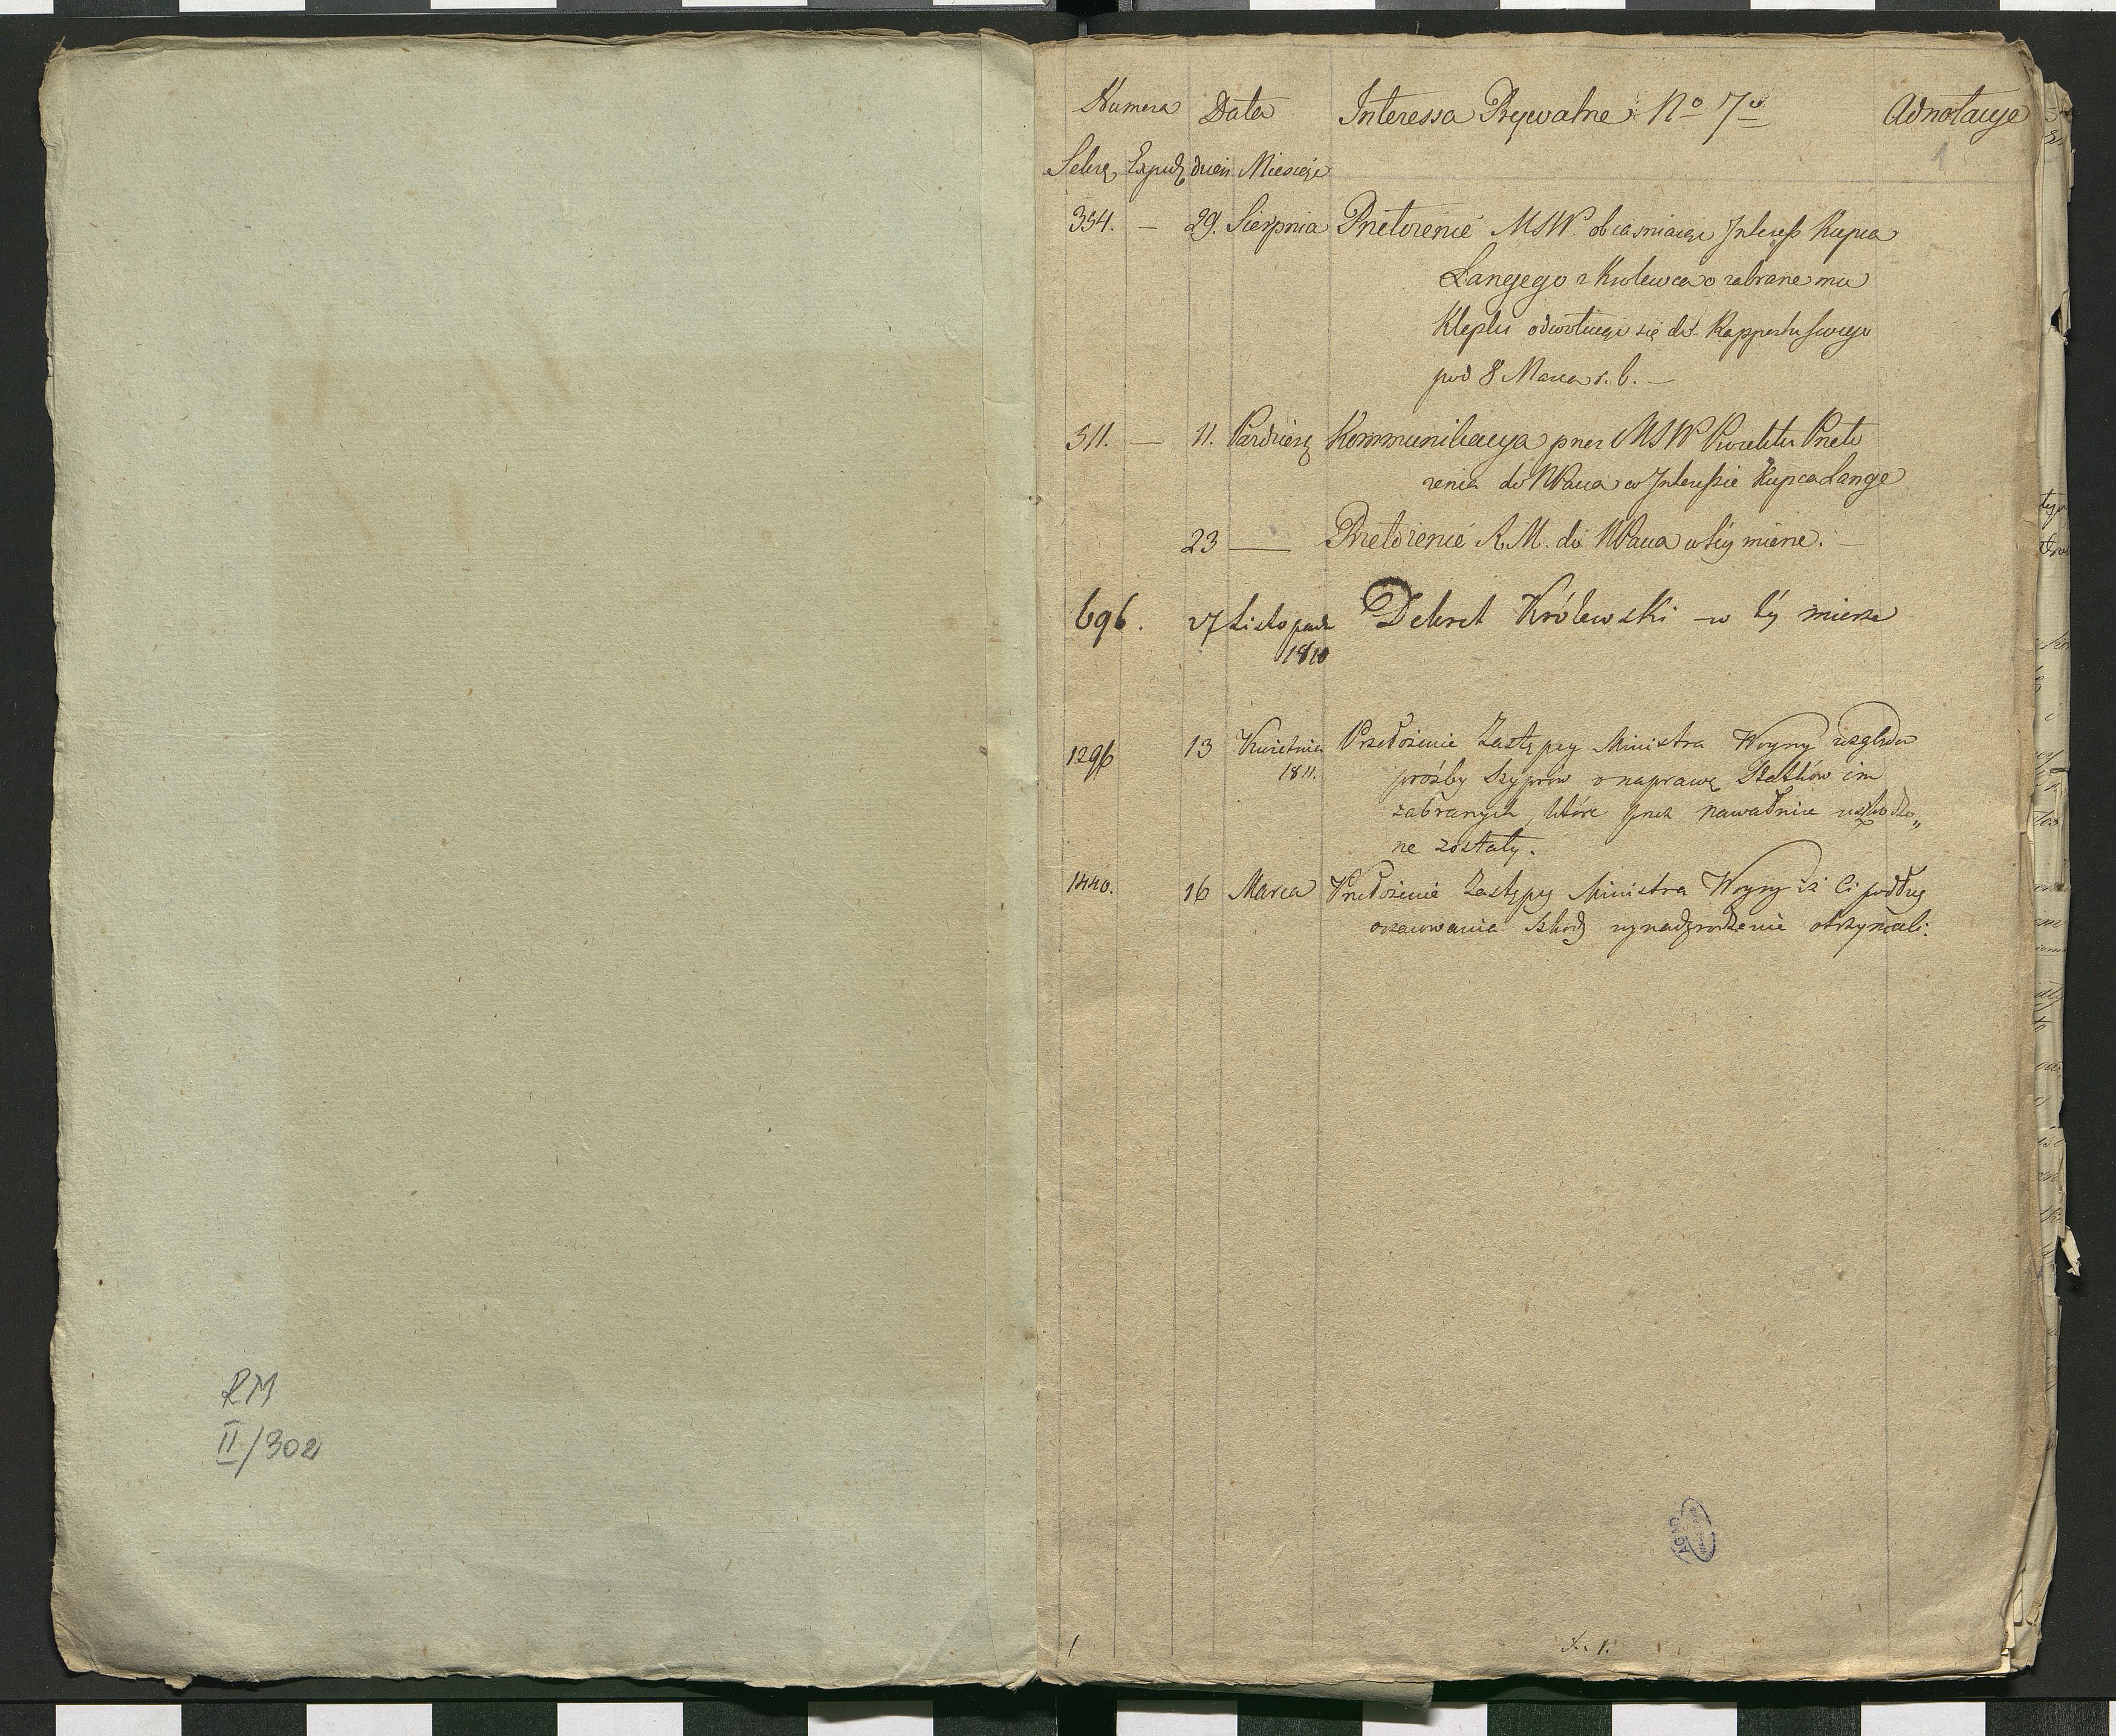 RM
II/302
Numera Data Interessa Prywatne N° 7° Adnotacye
1
Sekrę Expedy dzień Miesiąc
354. — 29. Sierpnia Przełożenie MSW. obiaśniaiące Interess Kupca
Langego z Krolewca o zabrane mu
Klepki odwołuiąc się do Rapportu swego
pod 8 Marca r. b. —
511. — 11. Pazdzier Kommunikacya przez MSW Proiektu Przeło
żenia do NPana w Interessie Kupca Lange
23 — Przełożenie R.M. do NPana w tey mierze. —
696. 27 Listopada Dekret Królewski w téy mierze
1810
1296 13 Kwietnia Przełożenie Zastępcy Ministra Woyny względem
1811. prośby Szyprów o naprawę Statków im
zabranych, które przez nawałnice uszkodzo„
ne zostały.
1440. 16 Marca Przełożenie Zastępcy Ministra Woyny iż Ci podług
oszacowania szkody wynadgrodzenie otrzymali.
AGAD
1